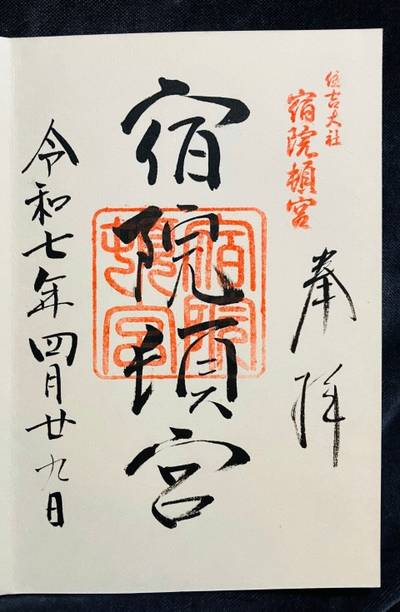 住吉大社
宿院頓宮
奉拝
宿院頓宮
宿院
頓宮
令和七年四月廿九日